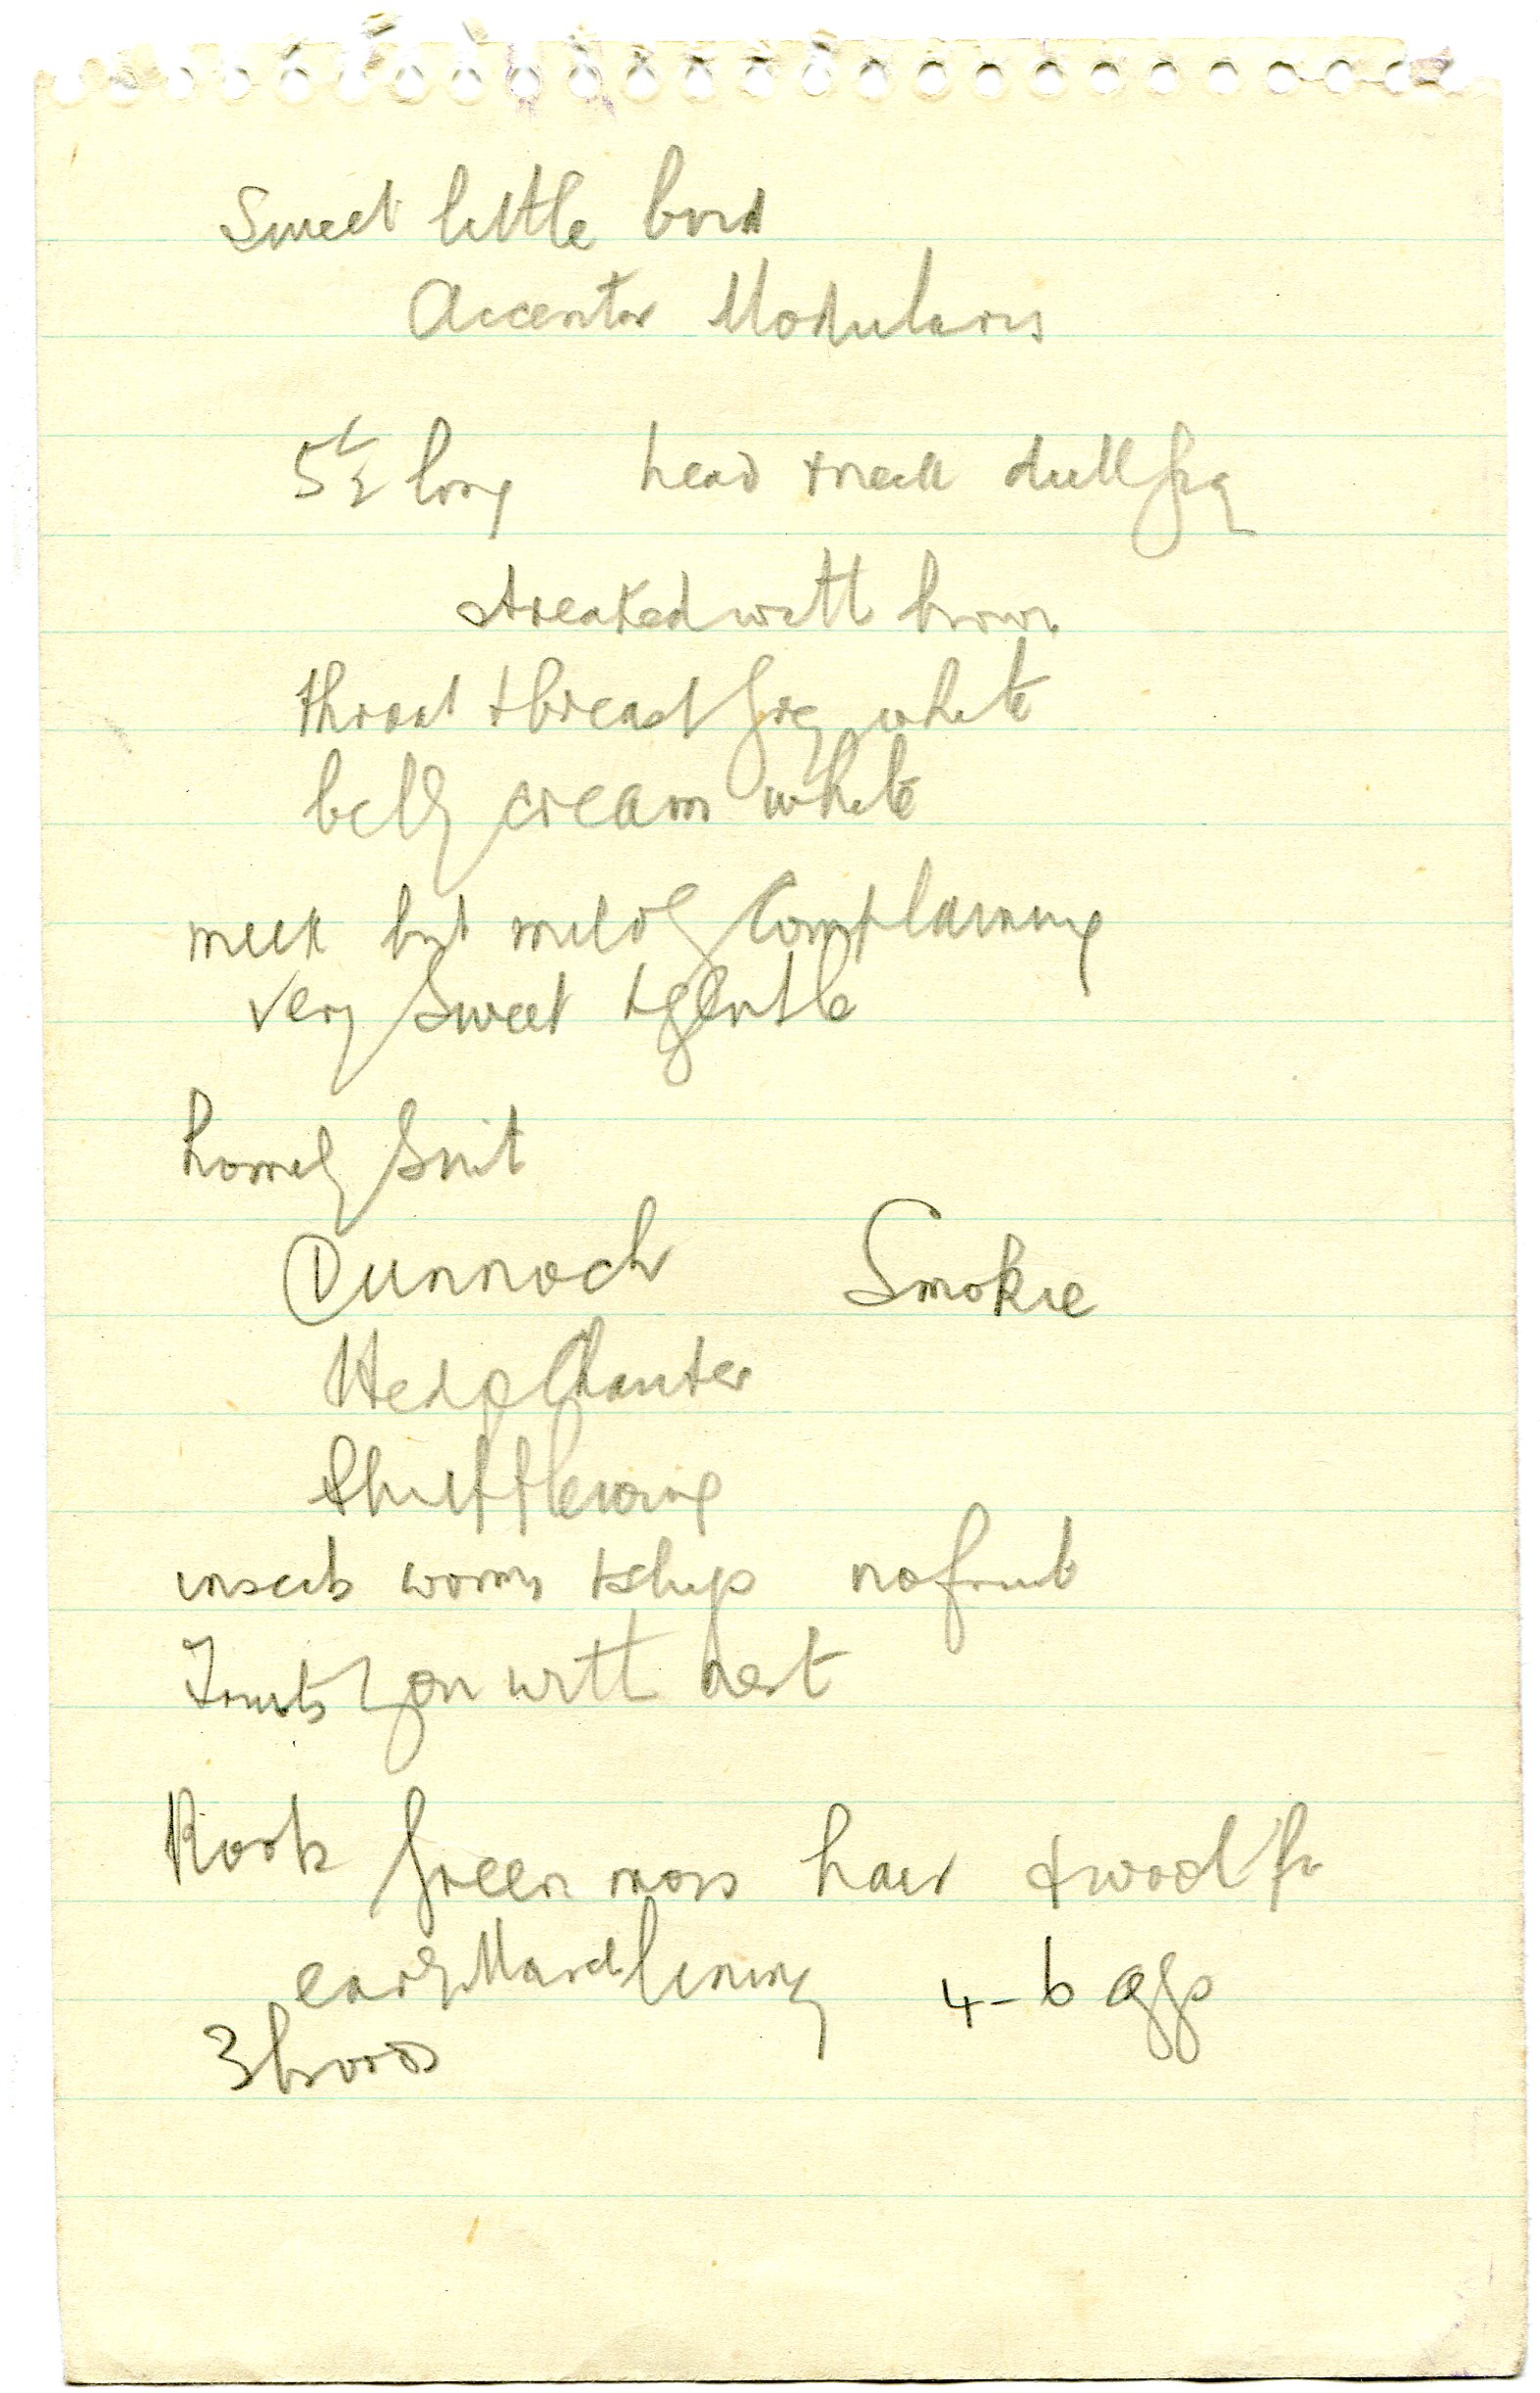 Sweet little bird
Accentor Modularis
5½ long head + neck dull grey
streaked with brown
throat + breast grey white
belly cream white
meek but mildly complaining
very sweet + gentle
homely suit
Dunnock Smokie
Hedge Chanter
Shufflewing
insects worms + slugs no fruit
Trusts you with nest
Roots green moss hair + wool for
early March lining 4-6 eggs
3 broods